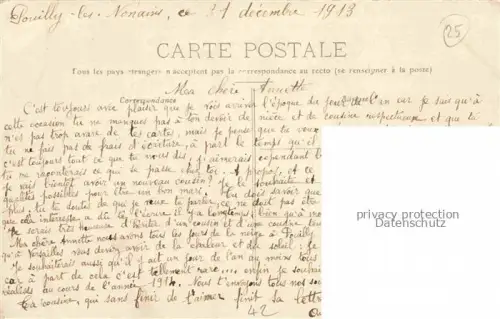 Pouilly-les-Nonains, ce 31 décembre 1913
25
CARTE POSTALE
Tous les pays étrangers n'acceptent pas la correspondance au recto (se renseigner à la poste)
Ma chère Annette
Correspondance
C'est toujours avec plaisir que je vois arriver l'époque du jour de l'an car je sais qu'à
cette occasion tu ne manques pas à ton devoir de nièce et de cousine respectueuse et que tu
n'es pas trop avare de tes cartes, mais je pense que tu veux
tu ne fais pas de frais d'écriture, à part le temps qu'il
c'est toujours tout ce que tu nous dis, j'aimerais cependant
tu me raconterais ce qui se passe chez toi. A propos, et ce
je vais bientôt avoir un nouveau cousin? Je le souhaite
qualités possibles pour être un bon mari. Tu dois savoir que
plus, tu te doutes de qui je veux te parler, ce ne doit pas être
que cela intéresse a dû te l'écrire il y a longtemps, bien qu'à
Je serais très heureuse d'hériter d'un cousin et d'une cousine
Ma chère Annette nous avons tous les jours de la neige à Pouilly
qu'à Versailles vous devez avoir de la chaleur et du soleil. Je
Je souhaiterais aussi qu'il y ait un jour de l'an au moins tous
car à part de cela c'est tellement rare.... enfin je souhaite
réalisés au cours de l'année 1914. Nous t'envoyons tous nos
Ta cousine, qui sans finir de t'aimer finit sa lettre
42
privacy protection
Datenschutz